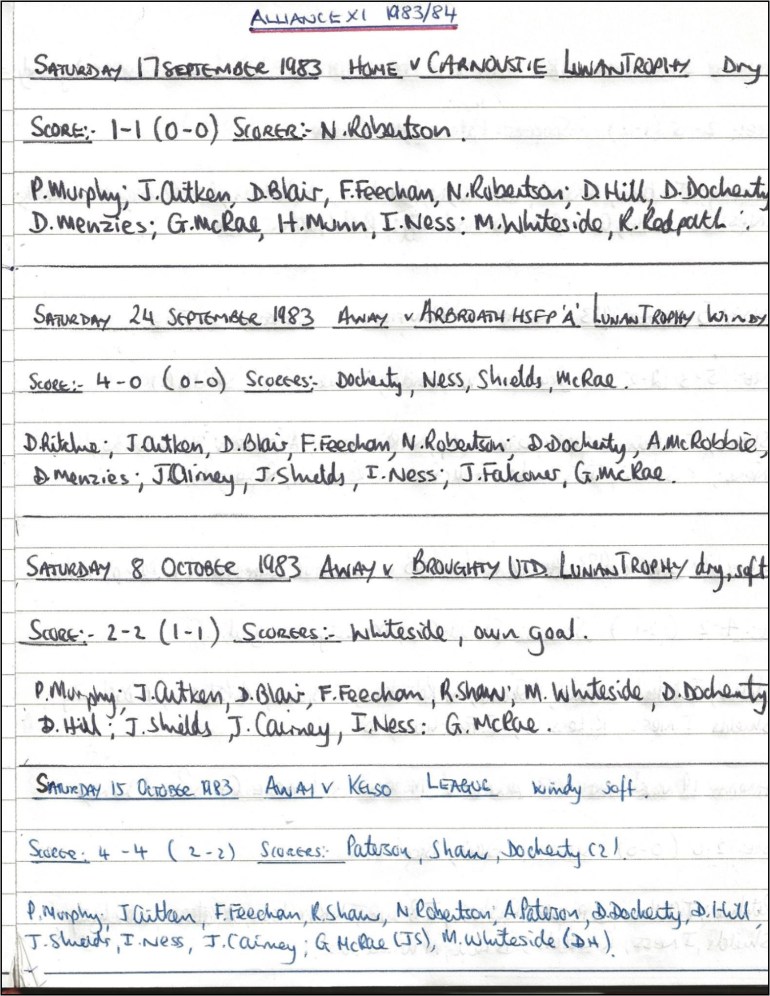 ALLIANCE XI 1983/84
SATURDAY 17 SEPTEMBER 1983 HOME v CARNOUSTIE LUNAN TROPHY Dry
SCORE:- 1-1 (0-0) SCORER:- N.Robertson.
P.Murphy; J.Aitken, D.Blair, F.Feechan, N.Robertson; D.Hill, D.Docherty
D.Menzies; G.McRae, H.Munn, I.Ness: M.Whiteside, R.Redpath.
SATURDAY 24 SEPTEMBER 1983 AWAY v ARBROATH HSFP 'A' LUNAN TROPHY WINDY
SCORE:- 4-0 (0-0) SCORERS:- Docherty, Ness, Shields, McRae.
D.Ritchie; J.Aitken, D.Blair, F.Feechan, N.Robertson; D.Docherty, A.McRobbie,
D.Menzies; J.Cairney, J.Shields, I.Ness; J.Falconer, G.McRae.
SATURDAY 8 OCTOBER 1983 AWAY v BROUGHTY UTD. LUNAN TROPHY dry, soft
SCORE:- 2-2 (1-1) SCORERS:- Whiteside, own goal.
P.Murphy; J.Aitken, D.Blair, F.Feechan, R.Shaw; M.Whiteside, D.Docherty
D.Hill; J.Shields J.Cairney, I.Ness: G.McRae.
SATURDAY 15 OCTOBER 1983 AWAY v KELSO LEAGUE windy soft.
SCORE: 4-4 (2-2) SCORERS:- Paterson, Shaw, Docherty (2).
P.Murphy; J Aitken, F.Feechan, R.Shaw, N.Robertson; A.Paterson, D.Docherty, D.Hill
J.Shields, I.Ness, J.Cairney; G McRae (JS), M.Whiteside (DH).